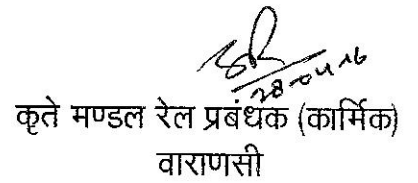 28-04-16
कृते मण्डल रेल प्रबंधक (कार्मिक)
वाराणसी